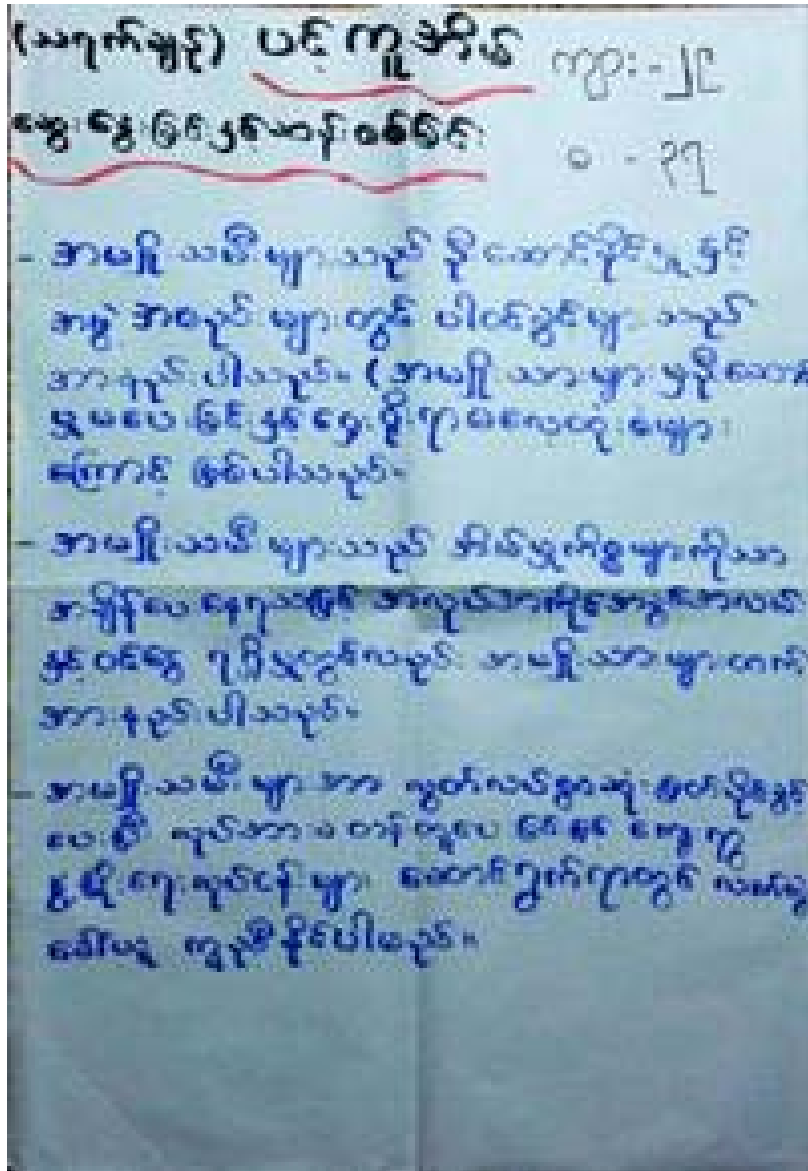 (သရက်ချိုန့်) ပင့်ကူအိမ် ကျား - ၂၄
ဆွေးနွေးခြင်းနှင့်
မ - ၃၇
- အမျိုးသမီးများသည် ဦးဆောင်နိုင်မှုနှင့်
အဖွဲ့အစည်းများတွင် ပါဝင်ခွင့်များသည်
အားနည်းပါသည်။ (အမျိုးသားများမှဦးဆောင်
မှုမပေးခြင်းနှင့်ရှေးရိုးရာဓလေ့ထုံးစံများ
ကြောင့် ဖြစ်ပါသည်။
- အမျိုးသမီးများသည် အိမ်မှုကိစ္စများကိုသာ
အချိန်ပေးနေရသဖြင့် အလုပ်အကိုင်အခွင့်အလမ်း
နှင့်ဝင်ငွေ ရရှိမှုတွင်လည်း အမျိုးသားများထက်
အားနည်းပါသည်။
- အမျိုးသမီးများအား လွတ်လပ်စွာဆုံးဖြတ်ပိုင်ခွင့်
ပေးပြီး လုပ်အားခ တန်းတူပေးခြင်းဖြင့် ကျေးရွာ
ဖွံ့ဖြိုးရေးလုပ်ငန်းများ ဆောင်ရွက်ရာတွင် လက်တွဲ
ခေါ်ယူ ကူညီနိုင်ပါမည်။